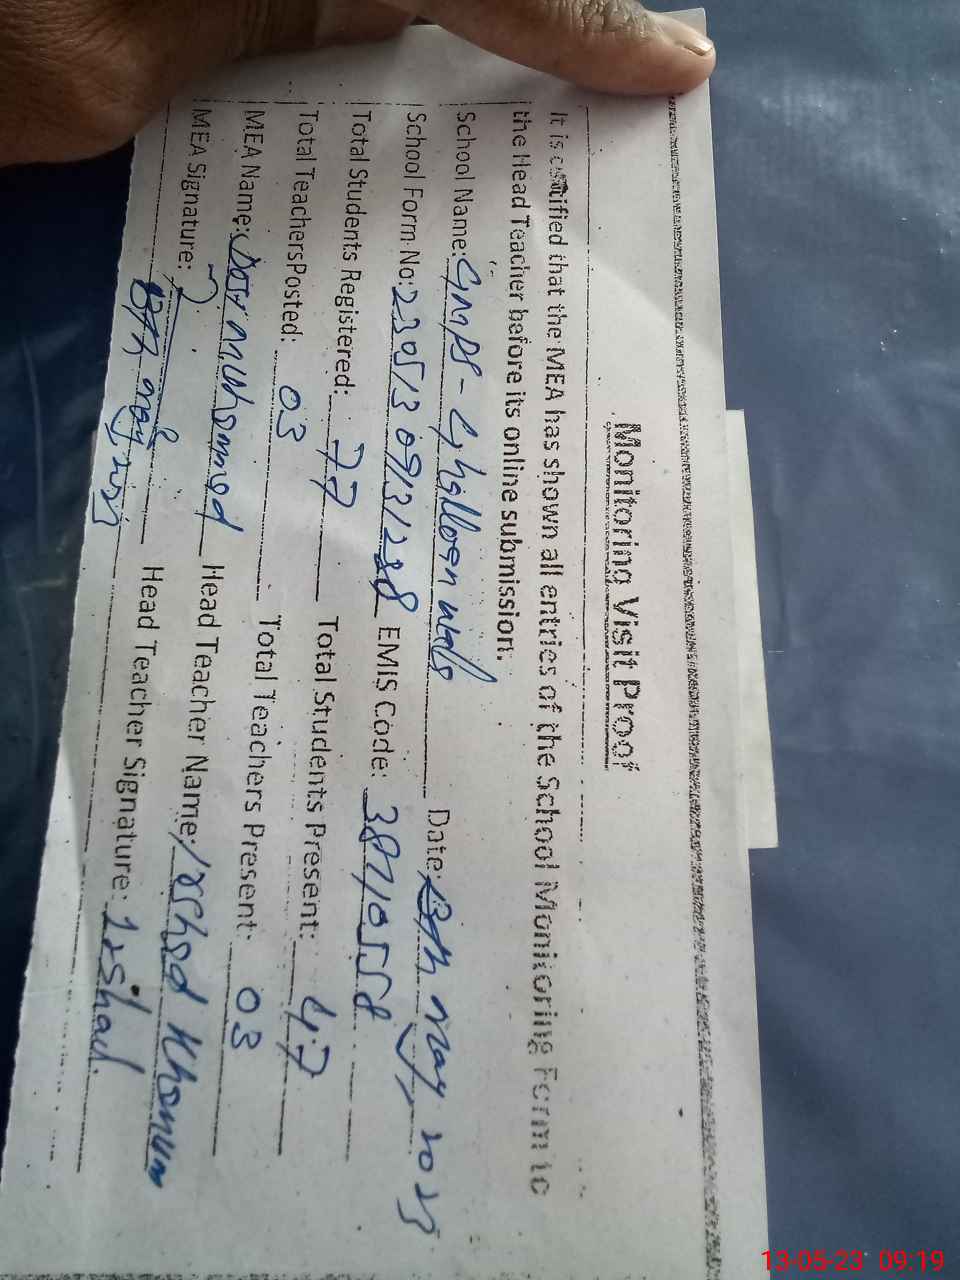 Monitoring Visit Proof
It is certified that the MEA has shown all entries of the School Monitoring Form to
the Head Teacher before its online submission.
School Name: GMPS - Date: 13th May, 2023
School Form No: EMIS Code: 38710558
Total Students Registered: 77 Total Students Present: 47
Total TeachersPosted: 03 Total Teachers Present: 03
MEA Name: Dost Muhammad Head Teacher Name: Irshad Khanum
MEA Signature: Head Teacher Signature: Irshad.
13th May 2023
13-05-23 09:19